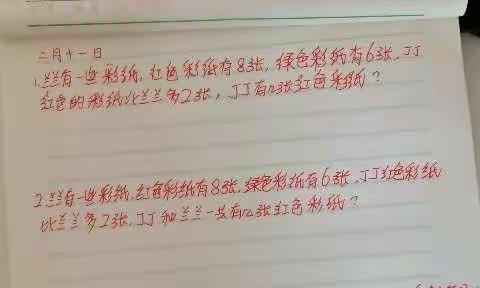 二月十一日
1.兰兰有一些彩纸,红色彩纸有8张,绿色彩纸有6张,丁丁
红色的彩纸比兰兰多2张,丁丁有几张红色彩纸?
2.兰兰有一些彩纸,红色彩纸有8张,绿色彩纸有6张,丁丁红色彩纸
比兰兰多2张,丁丁和兰兰一共有几张红色彩纸?